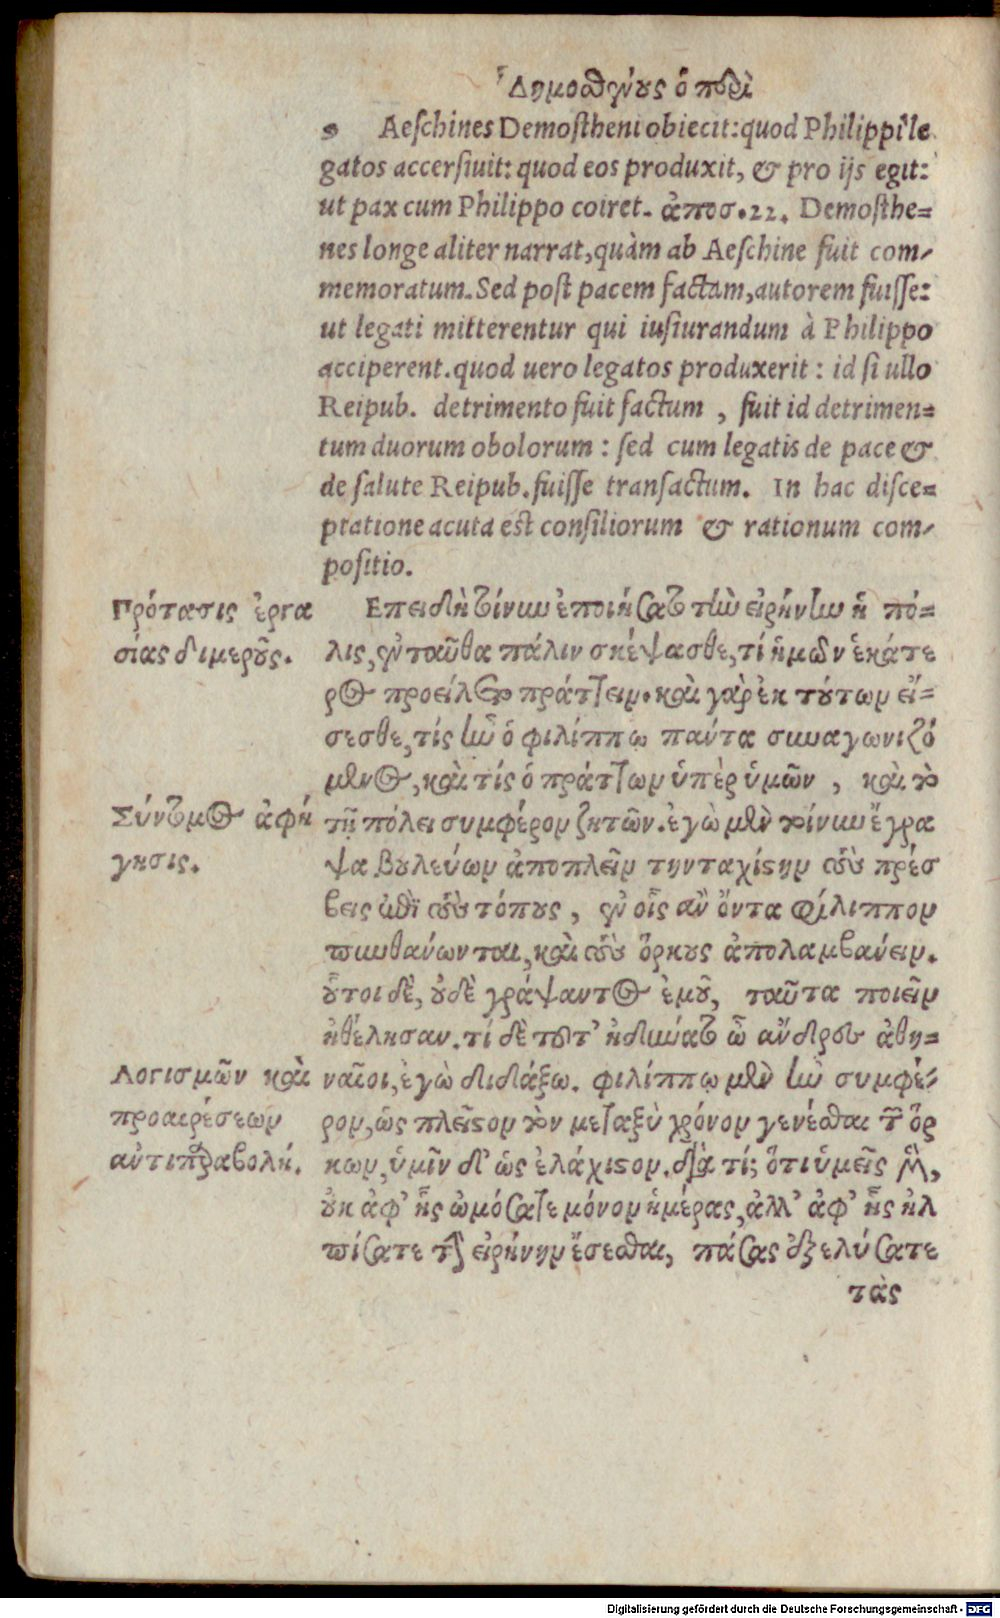 Δημοσθένους ὁ περὶ
9 Aeſchines Demoſtheni obiecit: quod Philippi le
gatos accerſiuit: quod eos produxit, & pro ijs egit:
ut pax cum Philippo coiret. ἀποσ. 22. Demoſthe=
nes longe aliter narrat, quàm ab Aeſchine fuit com-
memoratum. Sed poſt pacem factam, autorem fuiſſe:
ut legati mitterentur qui iuſiurandum à Philippo
acciperent. quod uero legatos produxerit : id ſi ullo
Reipub. detrimento fuit factum , fuit id detrimen=
tum duorum obolorum : ſed cum legatis de pace &
de ſalute Reipub. fuiſſe tranſactum. In hac diſce=
ptatione acuta eſt conſiliorum & rationum com-
poſitio.
Πρότασις ἐργα
σίας διμεροῦς.
Επειδὴ τοίνυν ἐποιήσατο τὴν εἰρήνην ἡ πό=
λις, ἐνταῦθα πάλιν σκέψασθε, τί ἡμῶν ἑκάτε
ρος προείλετο πράττειν. καὶ γὰρ ἐκ τούτων εἴ=
σεσθε, τίς ἦν ὁ φιλίππῳ πάντα συναγωνιζό
μενος, καὶ τίς ὁ πράττων ὑπὲρ ὑμῶν , καὶ τὸ
Σύντομος ἀφή
γησις.
τῇ πόλει συμφέρον ζητῶν. ἐγὼ μὲν τοίνυν ἔγρα
ψα βουλεύων ἀποπλεῖν τὴν ταχίστην τοὺς πρέσ
βεις ἐπὶ τοὺς τόπους , ἐν οἷς ἂν ὄντα φίλιππον
πυνθάνωνται, καὶ τοὺς ὅρκους ἀπολαμβάνειν.
οὗτοι δὲ, οὐδὲ γράψαντος ἐμοῦ, ταῦτα ποιεῖν
ἠθέλησαν. τί δὲ τοῦτ' ἠδύνατο ὦ ἄνδρες ἀθη=
Λογισμῶν καὶ
προαιρέσεων
ἀντιπαραβολή.
ναῖοι, ἐγὼ διδάξω. φιλίππῳ μὲν ἦν συμφέ-
ρον, ὡς πλεῖστον τὸν μεταξὺ χρόνον γενέσθαι τῶν ὅρ
κων, ὑμῖν δ' ὡς ἐλάχιστον. διὰ τί; ὅτι ὑμεῖς μὲν,
οὐκ ἀφ' ἧς ὠμόσατε μόνον ἡμέρας, ἀλλ' ἀφ' ἧς ἠλ
πίσατε τὴν εἰρήνην ἔσεσθαι, πάσας ἐξελύσατε
τὰς
Digitalisierung gefördert durch die Deutsche Forschungsgemeinschaft - DFG